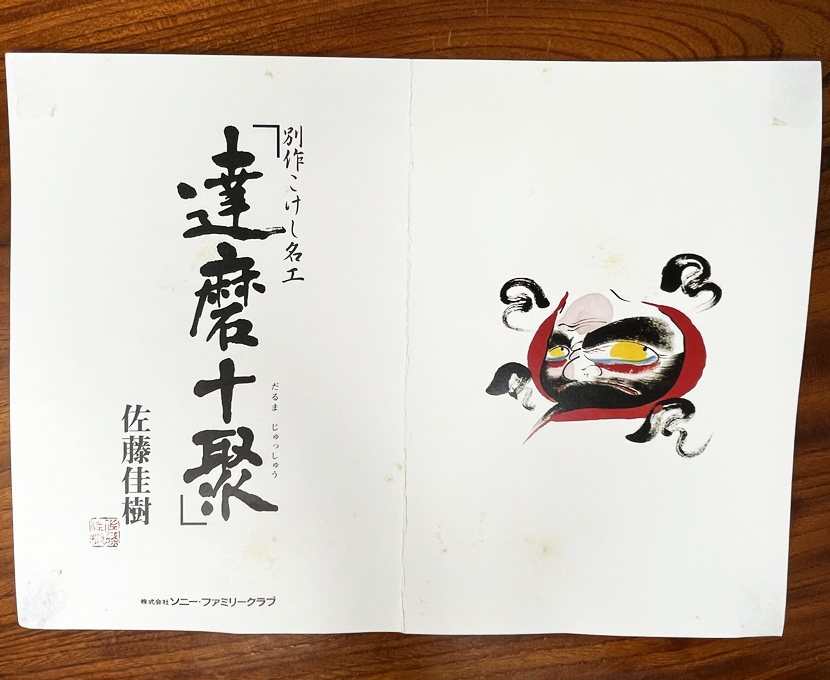 別作こけし名工
「達磨十聚」
だるま じゅっしゅう
佐藤佳樹
株式会社ソニー・ファミリークラブ